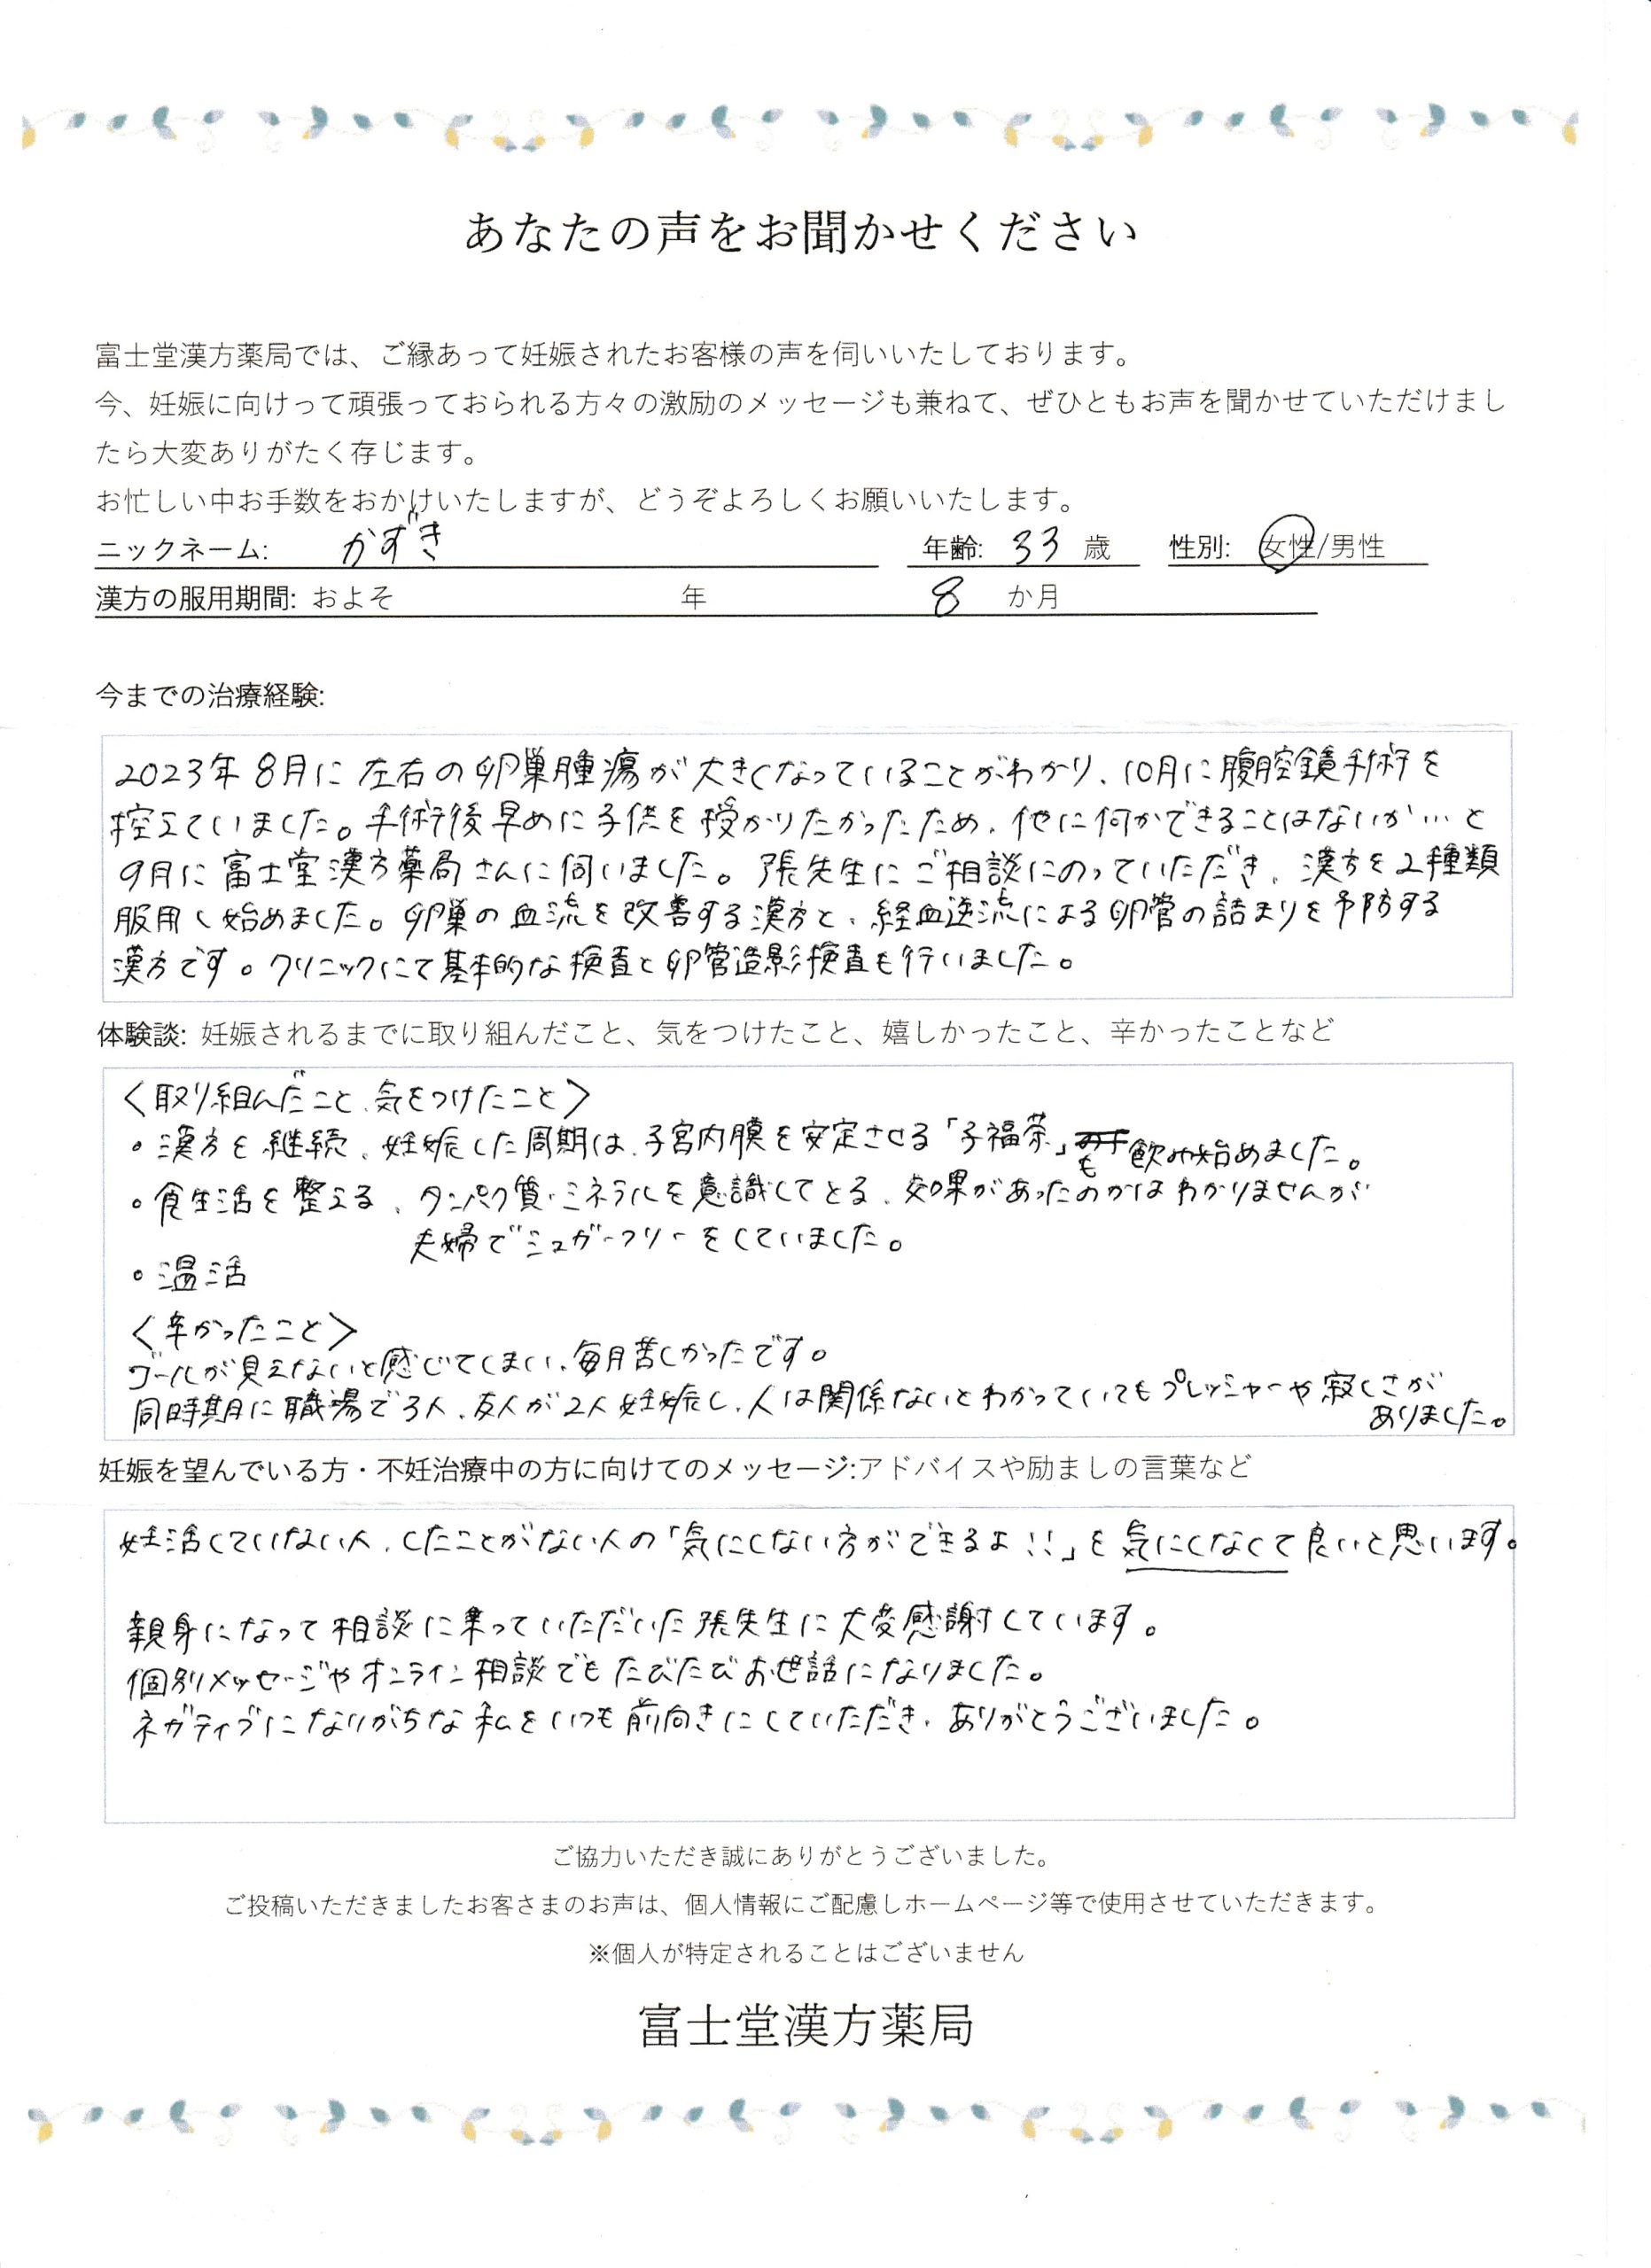 あなたの声をお聞かせください
富士堂漢方薬局では、ご縁あって妊娠されたお客様の声を伺いいたしております。
今、妊娠に向けって頑張っておられる方々の激励のメッセージも兼ねて、ぜひともお声を聞かせていただけまし
たら大変ありがたく存じます。
お忙しい中お手数をおかけいたしますが、どうぞよろしくお願いいたします。
ニックネーム: かずき 年齢: 33 歳 性別: 女性/男性
漢方の服用期間: およそ 年 8 か月
今までの治療経験:
2023年8月に左右の卵巣腫瘍が大きくなっていることがわかり、10月に腹腔鏡手術を
控えていました。手術後早めに子供を授かりたかったため、他に何かできることはないか…と
9月に富士堂漢方薬局さんに伺いました。張先生にご相談にのっていただき、漢方を2種類
服用し始めました。卵巣の血流を改善する漢方と、経血逆流による卵管の詰まりを予防する
漢方です。クリニックにて基本的な検査と卵管造影検査も行いました。
体験談: 妊娠されるまでに取り組んだこと、気をつけたこと、嬉しかったこと、辛かったことなど
〈取り組んだこと、気をつけたこと〉
・漢方を継続、妊娠した周期は、子宮内膜を安定させる「子福茶」も飲み始めました。
・食生活を整える、タンパク質・ミネラルを意識してとる、効果があったのかはわかりませんが
夫婦でシュガーフリーをしていました。
・温活
〈辛かったこと〉
ゴールが見えないと感じてしまい、毎月苦しかったです。
同時期に職場で3人、友人が2人妊娠し、人は関係ないとわかっていてもプレッシャーや寂しさが
ありました。
妊娠を望んでいる方・不妊治療中の方に向けてのメッセージ:アドバイスや励ましの言葉など
妊活していない人、したことがない人の「気にしない方ができるよ!!」を気にしなくて良いと思います。
親身になって相談に乗っていただいた張先生に大変感謝しています。
個別メッセージやオンライン相談でもたびたびお世話になりました。
ネガティブになりがちな私をいつも前向きにしていただき、ありがとうございました。
ご協力いただき誠にありがとうございました。
ご投稿いただきましたお客さまのお声は、個人情報にご配慮しホームページ等で使用させていただきます。
※個人が特定されることはございません
富士堂漢方薬局